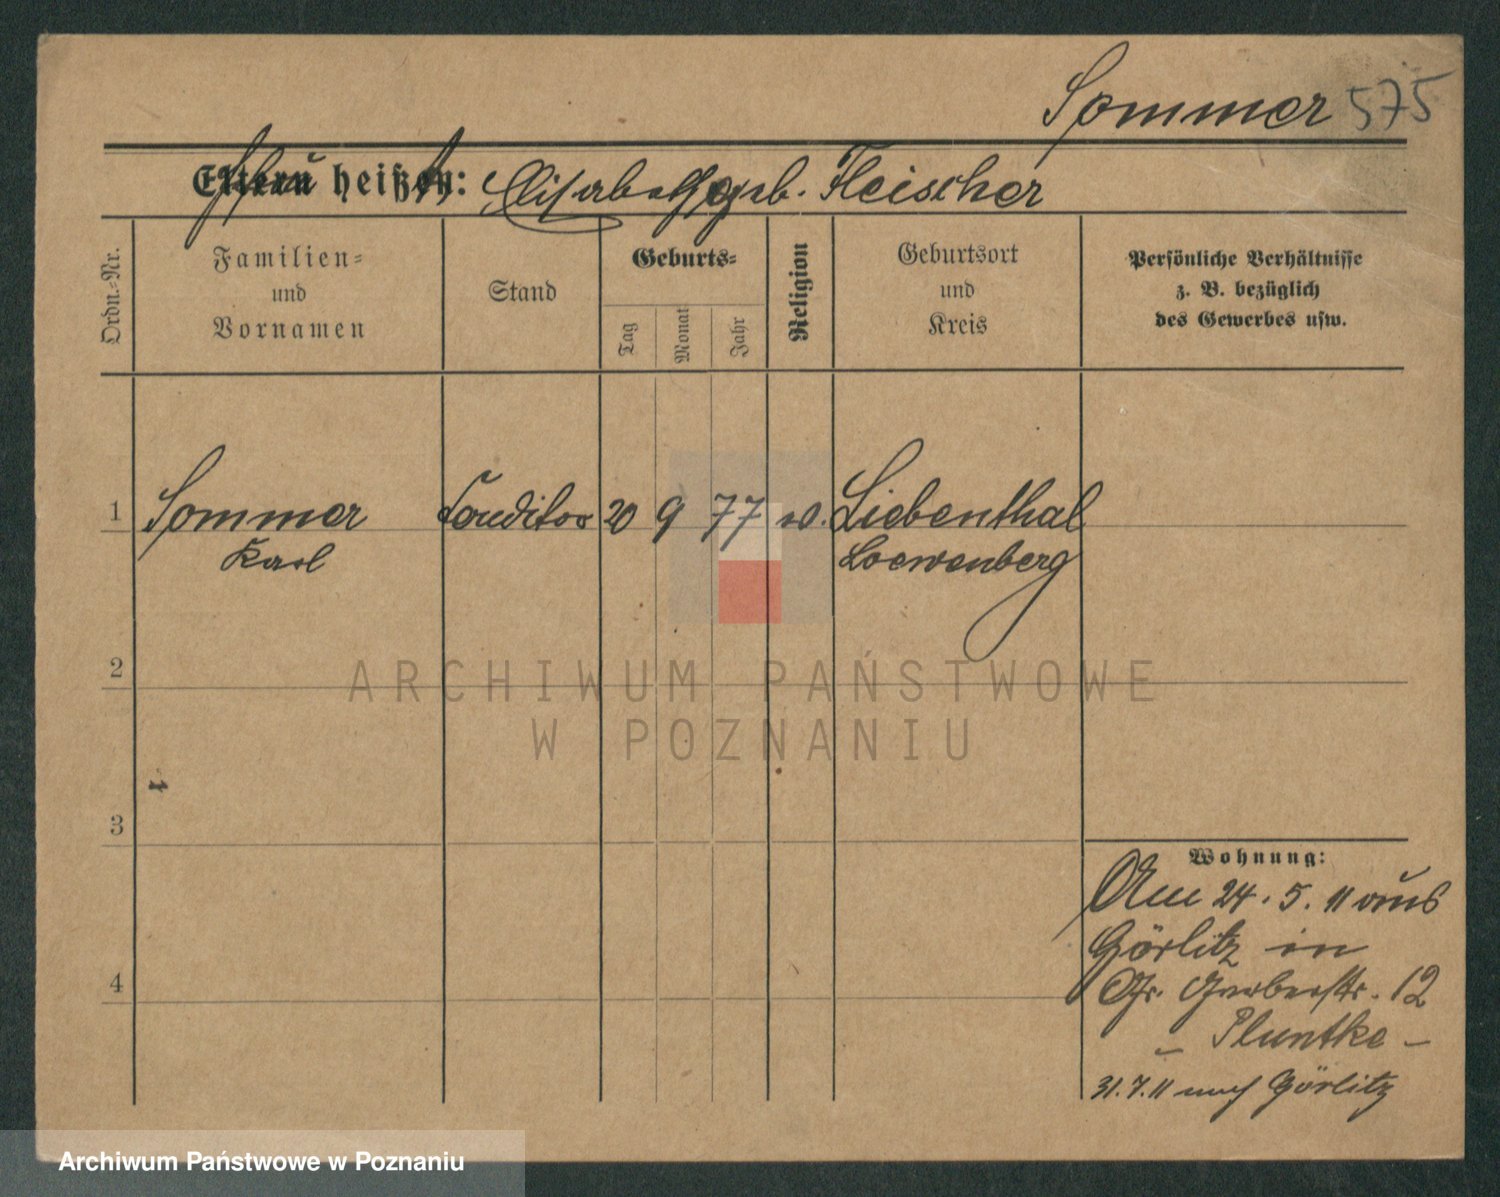 Sommer 575
Eltern heißen: Elisabeth geb. Fleischer
Ordn.-Nr.
Familien-
und
Vornamen
Stand
Geburts-
Tag
Monat
Jahr
Religion
Geburtsort
und
Kreis
Persönliche Verhältnisse
z. B. bezüglich
des Gewerbes usw.
1 Sommer Conditor 20 9 77 Liebenthal
Karl Loewenberg
2
3
4
Wohnung:
Am 24. 5. 11 aus
Görlitz in
Gr. Gerberstr. 12
- Pluntke -
31.7.11 nach Görlitz
ARCHIWUM PAŃSTWOWE
W POZNANIU
Archiwum Państwowe w Poznaniu